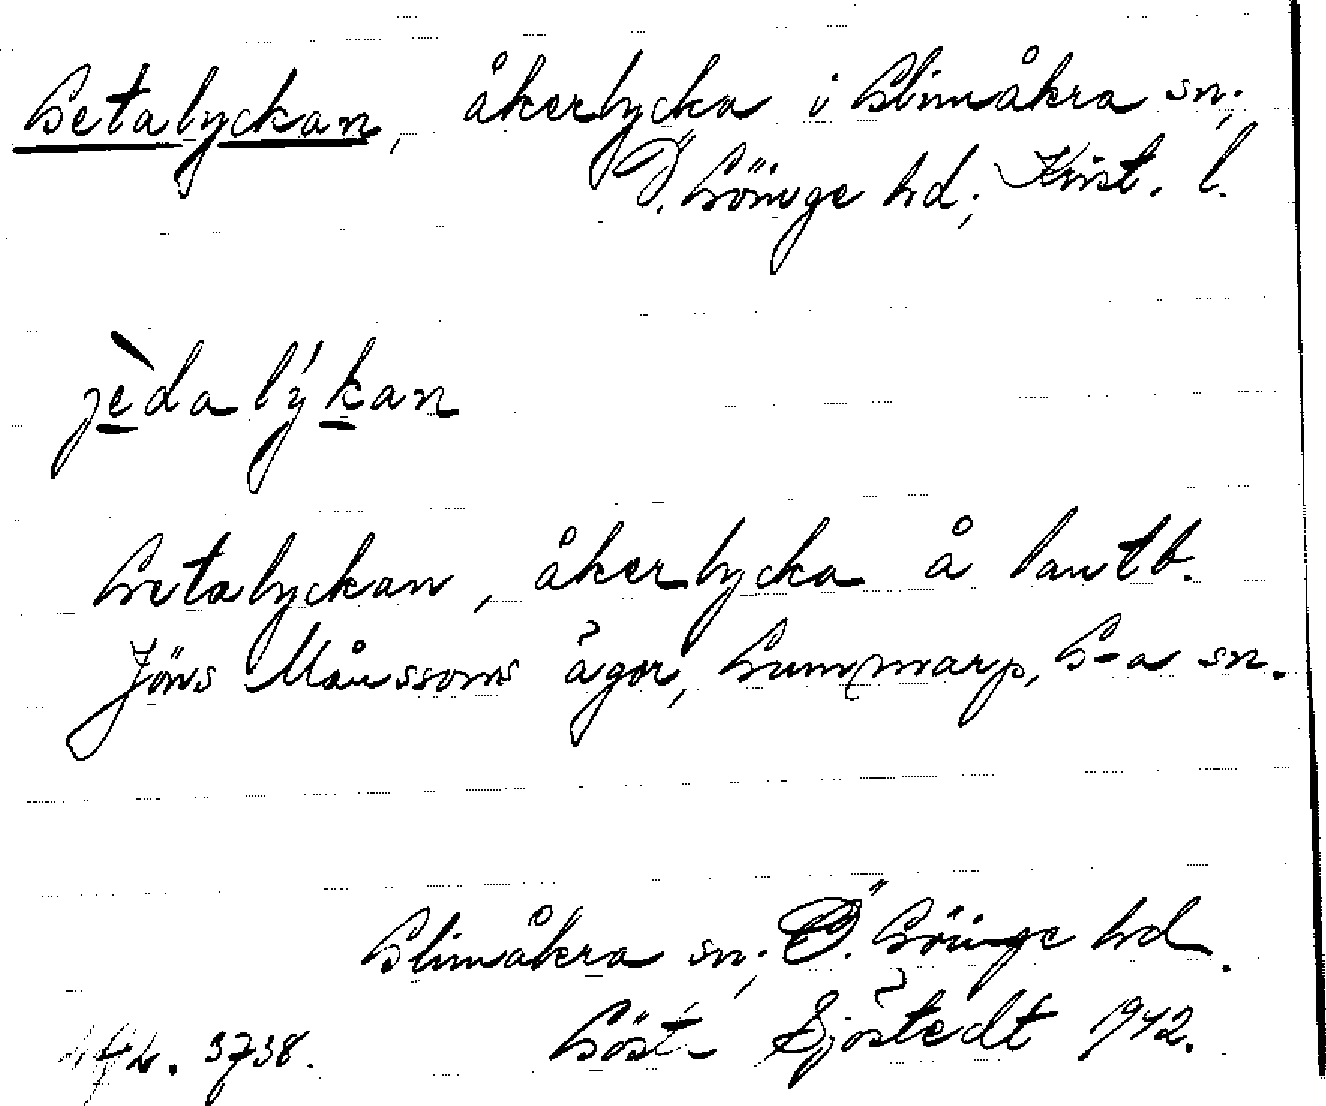 Getalyckan, åkerlycka i Glimåkra sn;
Ö. Göinge hd; Krist. l.
jèdalýkan
Getalyckan, åkerlycka å lantb.
Jöns Månssons ägor, Gummarp, G-a sn.
Glimåkra sn; Ö. Göinge hd.
3738. Göst. Sjöstedt 1942.